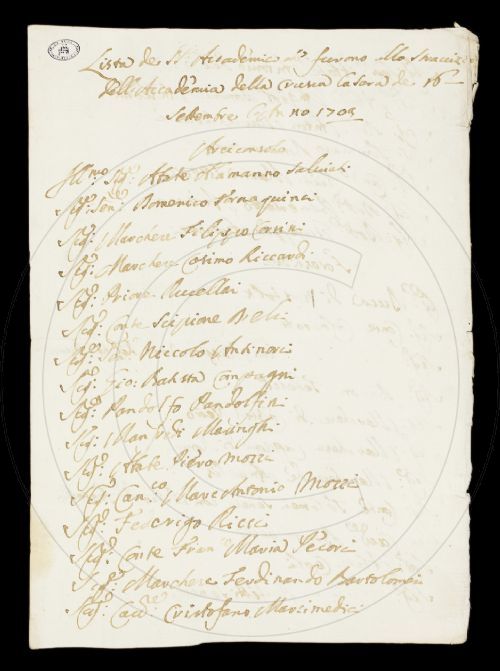 Lista de SS.ri Accademici che furono allo Stravizzo
Dell'Accademia della Crusca la sera de 16
Settembre 1703
Arciconsolo
Ill.mo Sig.r Abate Alamanno Salviati
Sig.r Sen.re Domenico Tornaquinci
Sig.r Marchese Filippo Corsini
Sig.r Marchese Cosimo Riccardi
Sig.r Priore Rucellai
Sig.r Conte Scipione
Sig.r Niccolo Antinori
Sig.r Gio: Batista Compagni
Sig.r Pandolfo Pandolfini
Sig.r Manfredi
Sig.r Abate Piero Mozzi
Sig.r Can.co Marc Antonio Mozzi
Sig.r Federigo Ricci
Sig.r Conte Fran.co Maria Pecori
Sig.r Marchese Ferdinando Bartolommei
Sig.r Cristofano Marzimedici